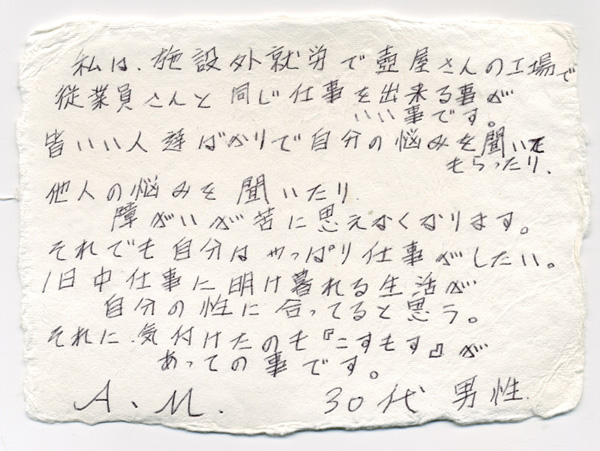 私は、施設外就労で壺屋さんの工場で
従業員さんと同じ仕事を出来る事が
いい事です。
皆いい人達ばかりで自分の悩みを聞いて
もらったり、
他人の悩みを聞いたり、
障がいが苦に思えなくなります。
それでも自分はやっぱり仕事がしたい。
1日中仕事に明け暮れる生活が
自分の性に合ってると思う。
それに、気付けたのも『こすもす』が
あっての事です。
A、M. 30代 男性